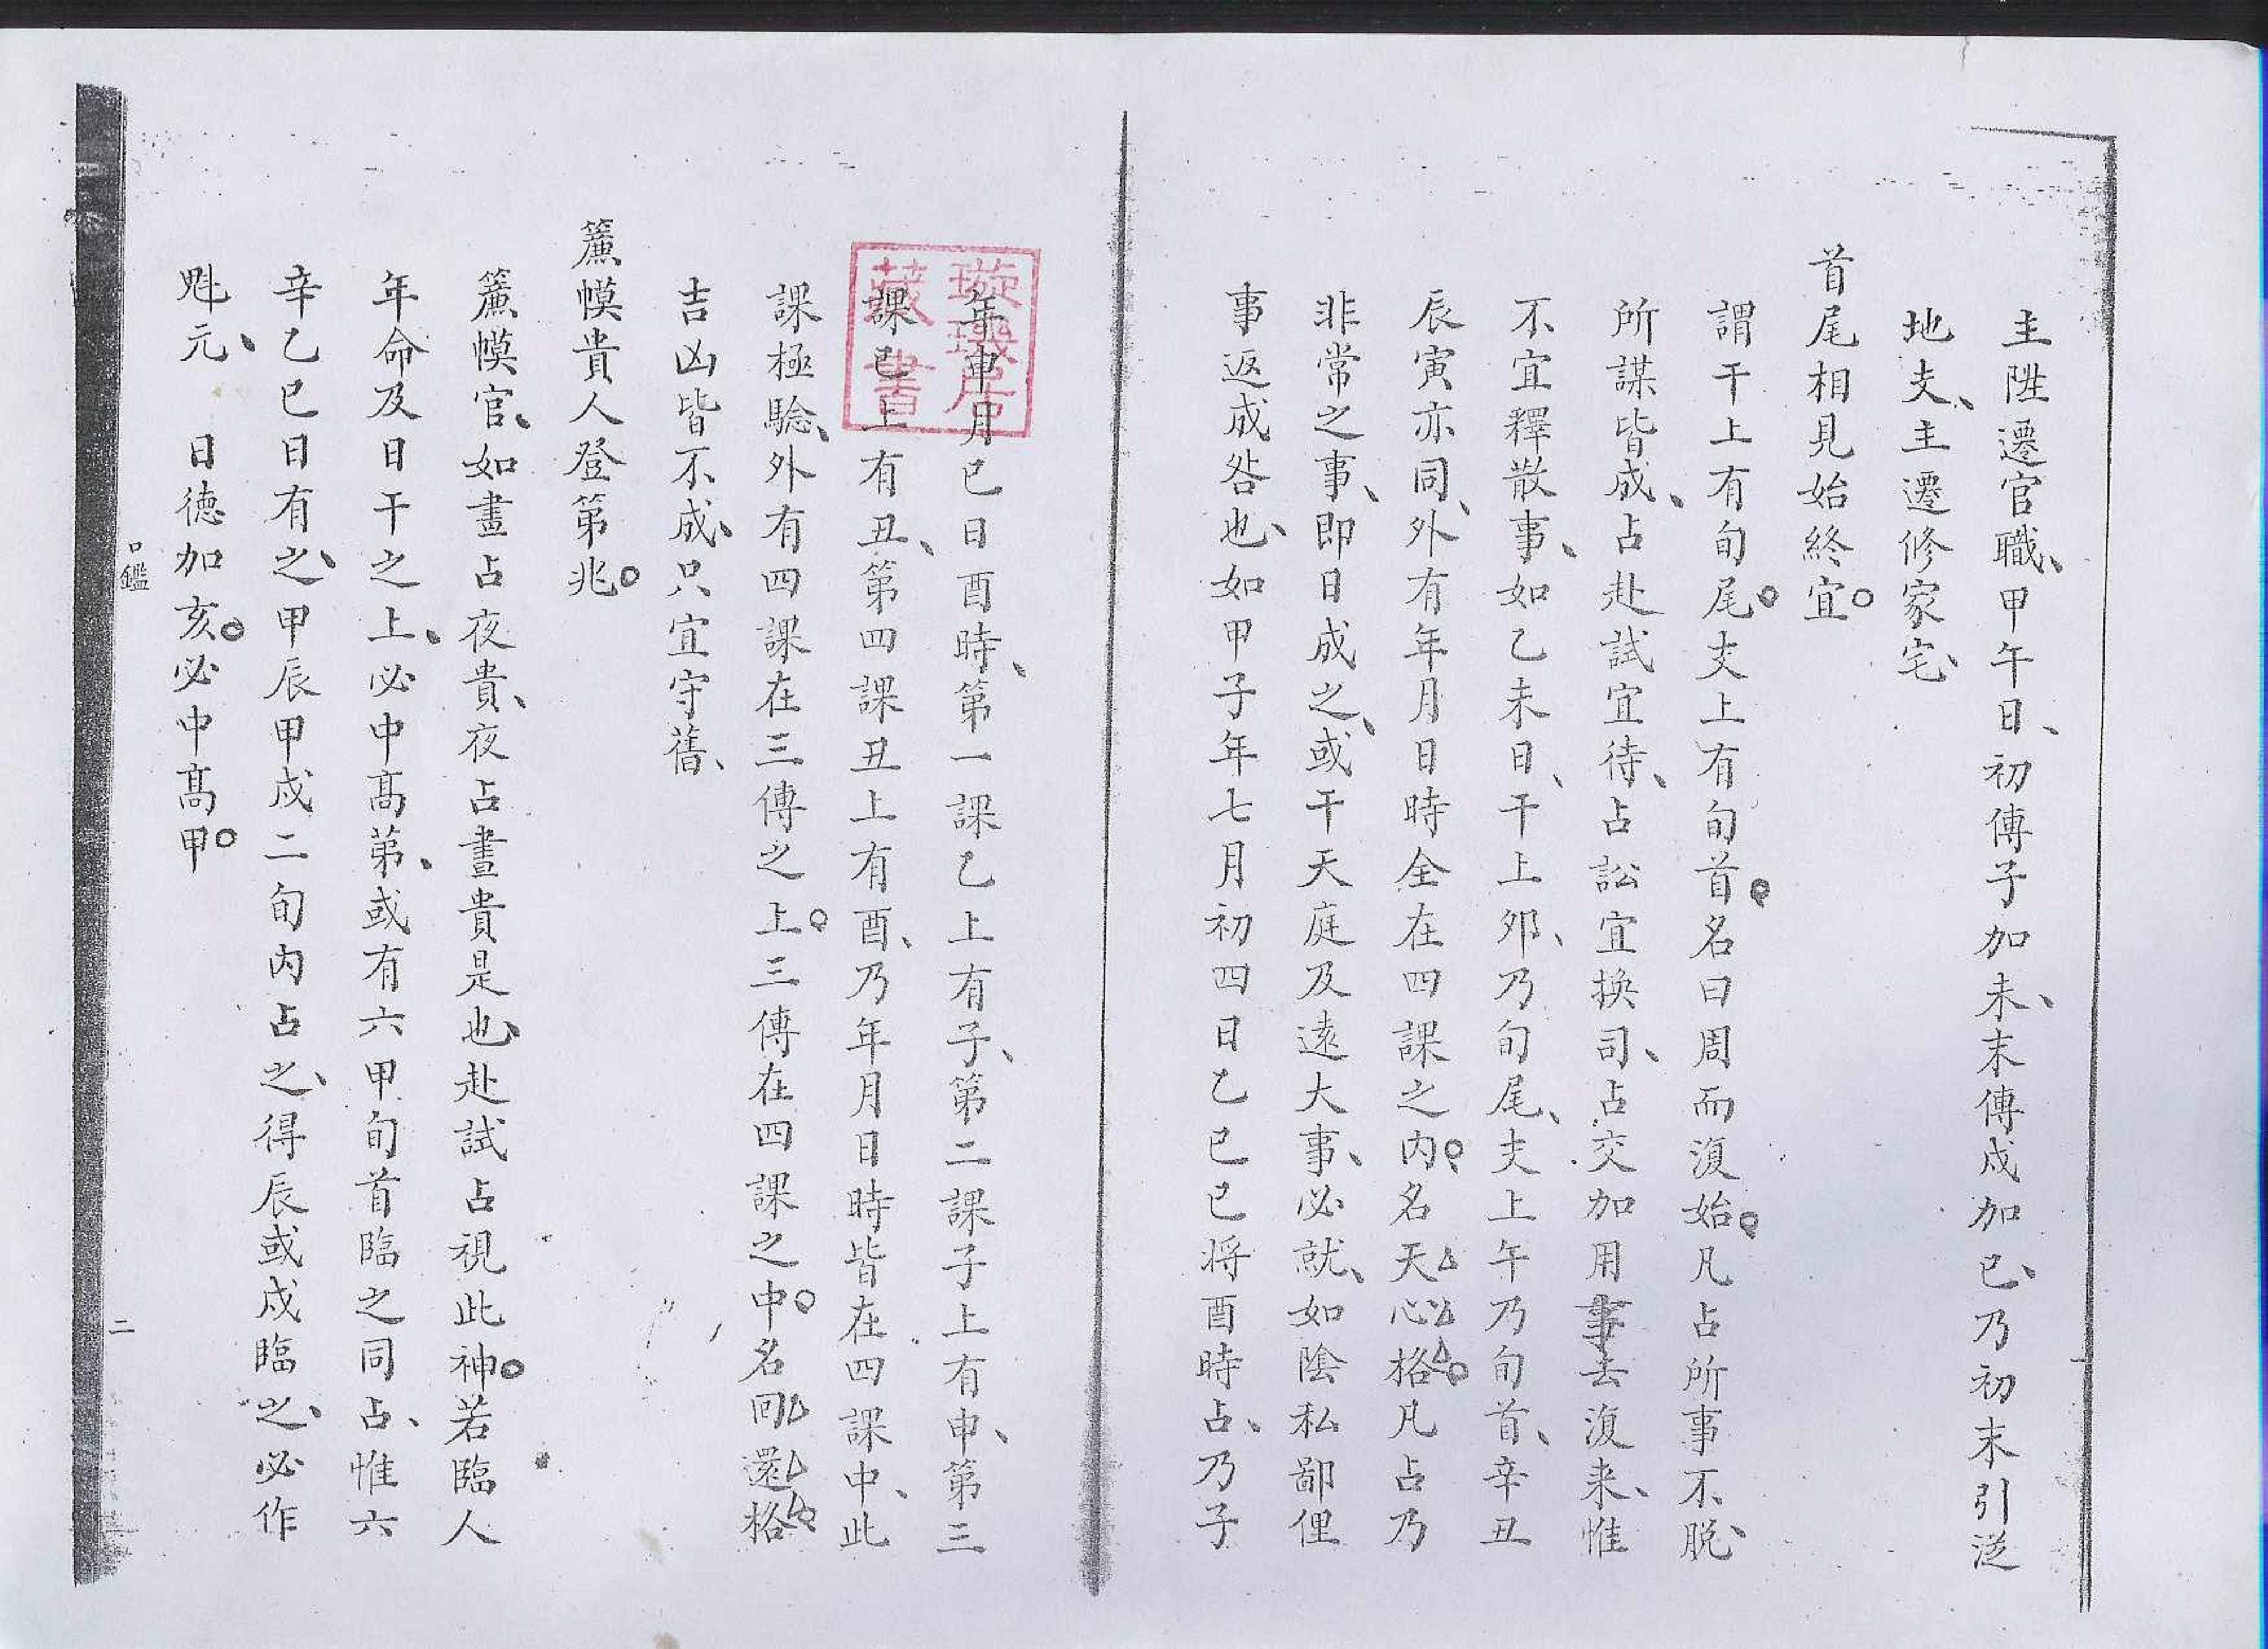 主陞遷官職、甲午日、初傳子加未、末傳戌加巳、乃初末引從
地支、主遷修家宅、
首尾相見始終宜。
謂干上有旬尾。支上有旬首。名曰周而復始。凡占所事不脫、
所謀皆成、占赴試宜待、占訟宜換司、占交加用事去復来、惟
不宜釋散事、如乙未日、干上夘、乃旬尾、支上午乃旬首、辛丑
辰寅亦同、外有年月日時全在四課之內。名天心格。凡占乃
非常之事、即日成之、或干天庭及遠大事、必就、如陰私鄙俚
事返成咎也、如甲子年七月初四日乙巳巳将酉時占、乃子
年申月巳日酉時、第一課乙上有子、第二課子上有申、第三
課巳上有丑、第四課丑上有酉、乃年月日時皆在四課中、此
課極驗、外有四課在三傳之上。三傳在四課之中。名回還格
吉凶皆不成、只宜守舊、
簾幙貴人登第兆。
簾幙官、如晝占夜貴、夜占晝貴是也、赴試占視此神。若臨人
年命及日干之上、必中高第、或有六甲旬首臨之同占、惟六
辛乙巳日有之、甲辰甲戌二旬內占之、得辰或戌臨之、必作
魁元、 日德加亥。必中高甲。
口鑑
二
璇璣居
藏書